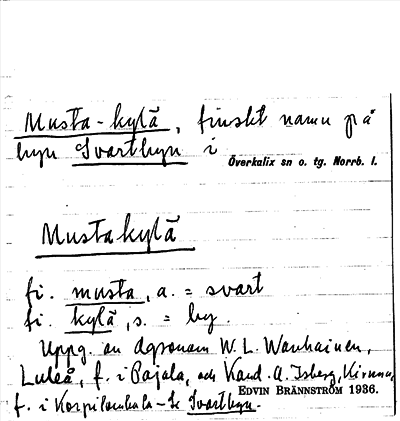 Musta-kylä, finskt namn på
byn Svartbyn i Överkalix sn o. tg. Norrb. l.
Mustakylä
fi. musta, a. = svart
fi. kylä, s. = by.
Uppg. av Agronom W. L. Wanhainen,
Luleå, f. i Pajala, och Kand. A. Isberg, Kiruna,
EDVIN BRÄNNSTRÖM 1936.
f. i Korpilombolo - Se Svartbyn.